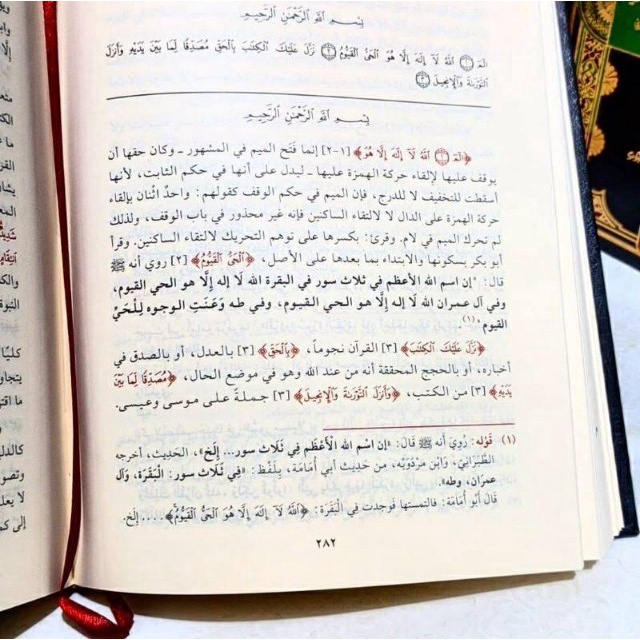 بِسْمِ ٱللَّهِ ٱلرَّحْمَٰنِ ٱلرَّحِيمِ
الٓمٓ ١ ٱللَّهُ لَآ إِلَٰهَ إِلَّا هُوَ ٱلْحَىُّ ٱلْقَيُّومُ ٢ نَزَّلَ عَلَيْكَ ٱلْكِتَٰبَ بِٱلْحَقِّ مُصَدِّقًا لِّمَا بَيْنَ يَدَيْهِ وَأَنزَلَ
ٱلتَّوْرَىٰةَ وَٱلْإِنجِيلَ ٣
بِسْمِ ٱللَّهِ ٱلرَّحْمَٰنِ ٱلرَّحِيمِ
﴿الٓمٓ ١ ٱللَّهُ لَآ إِلَٰهَ إِلَّا هُوَ﴾ [١-٢] إنما فتح الميم في المشهور ـ وكان حقها أن
يوقف عليها لإلقاء حركة الهمزة عليها ـ ليدل على أنها في حكم الثابت، لأنها
أسقطت للتخفيف لا للدرج، فإن الميم في حكم الوقف كقولهم: واحدْ اثنان بإلقاء
حركة الهمزة على الدال لا لالتقاء الساكنين فإنه غير محذور في باب الوقف، ولذلك
لم تحرك الميم في لام. وقرئ: بكسرها على توهم التحريك لالتقاء الساكنين. وقرأ
أبو بكر بسكونها والابتداء بما بعدها على الأصل، ﴿ٱلْحَىُّ ٱلْقَيُّومُ﴾ [٢] روي أنه ﷺ
قال: "إن اسم الله الأعظم في ثلاث سور في البقرة الله لا إله إلا هو الحي القيوم،
وفي آل عمران الله لا إله إلا هو الحي القيوم، وفي طه وعَنَتِ الوجوه لِلْحَيِّ
القيوم"(١).
﴿نَزَّلَ عَلَيْكَ ٱلْكِتَٰبَ﴾ [٣] القرآن نجوماً، ﴿بِٱلْحَقِّ﴾ [٣] بالعدل، أو بالصدق في
أخباره، أو بالحجج المحققة أنه من عند الله وهو في موضع الحال، ﴿مُصَدِّقًا لِّمَا بَيْنَ
يَدَيْهِ﴾ [٣] من الكتب، ﴿وَأَنزَلَ ٱلتَّوْرَىٰةَ وَٱلْإِنجِيلَ﴾ [٣] جملةً على موسى وعيسى.
(١) قَوْله: رُوِيَ أنه ﷺ قَالَ: "إن اسْم الله الأَعْظَم فِي ثَلَاث سور... إلخ"، الحَدِيث، أخرجه
الطَّبَرَانِيّ، وَابْن مرْدَوَيْه، من حَدِيث أبي أُمَامَة، بِلَفْظ: «فِي ثَلَاث سور: الْبَقَرَة، وَآل
عمرَان، وطه».
قَالَ أَبُو أُمَامَة: فالتمستها فَوجدت فِي الْبَقَرَة: ﴿ٱللَّهُ لَآ إِلَٰهَ إِلَّا هُوَ ٱلْحَىُّ ٱلْقَيُّومُ﴾ .... إلخ.
٢٨٢